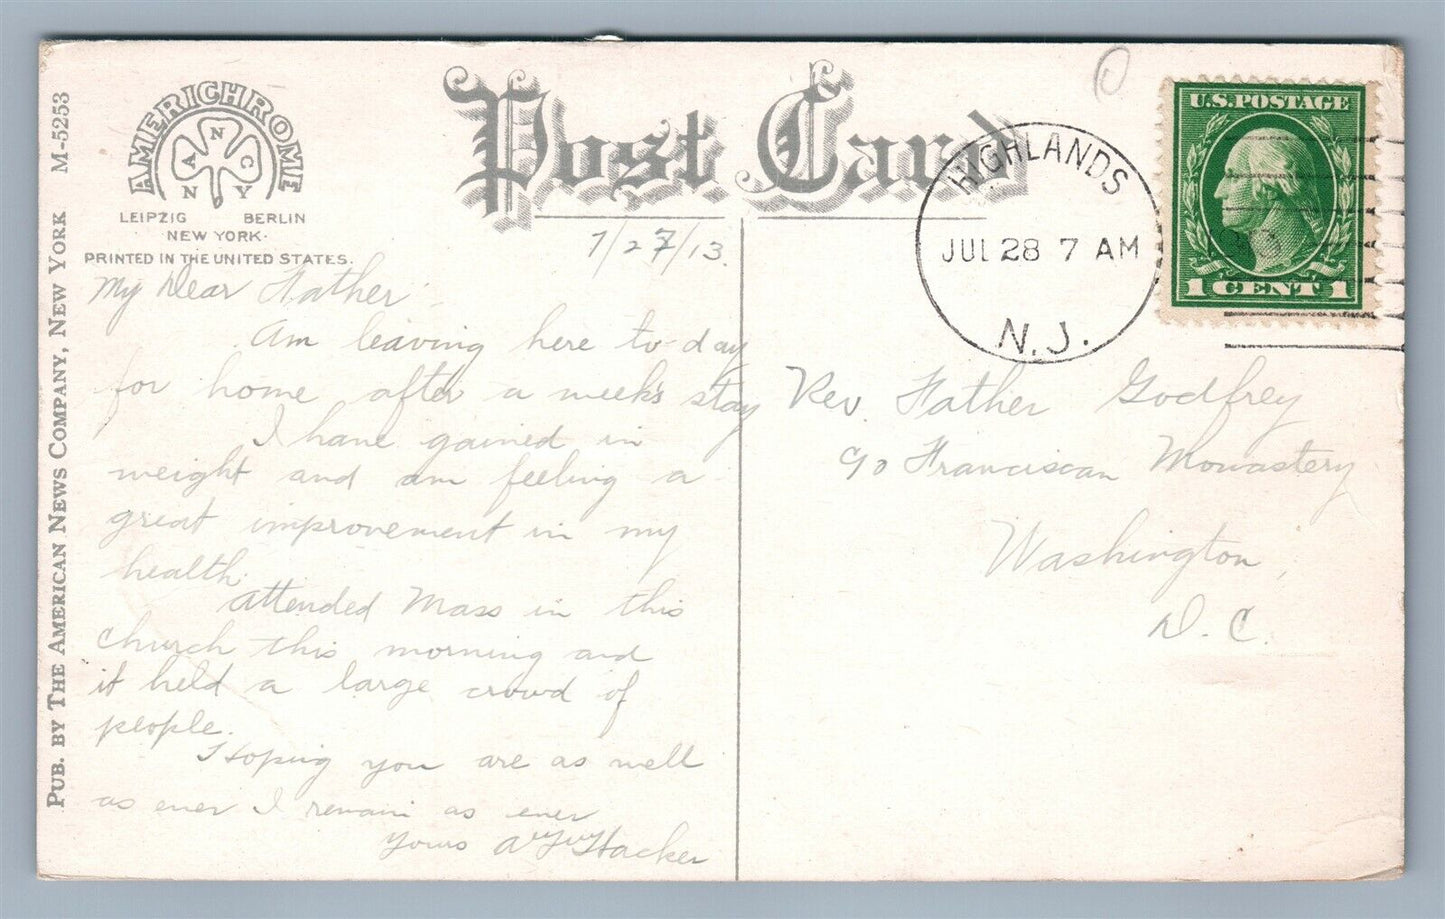 AMERICHROME
A N C
N Y
LEIPZIG BERLIN
NEW YORK.
PRINTED IN THE UNITED STATES.
PUB. BY THE AMERICAN NEWS COMPANY, NEW YORK M-5253
Post Card
HIGHLANDS
JUL 28 7 AM
N.J.
U.S. POSTAGE
1 CENT 1
7/27/13.
My Dear Father:-
Am leaving here to-day
for home after a week's stay
I have gained in
weight and am feeling a
great improvement in my
health.
Attended Mass in this
church this morning and
it held a large crowd of
people.
Hoping you are as well
as ever I remain as ever
Yours Hacker
Rev. Father Godfrey
c/o Franciscan Monastery
Washington,
D.C.